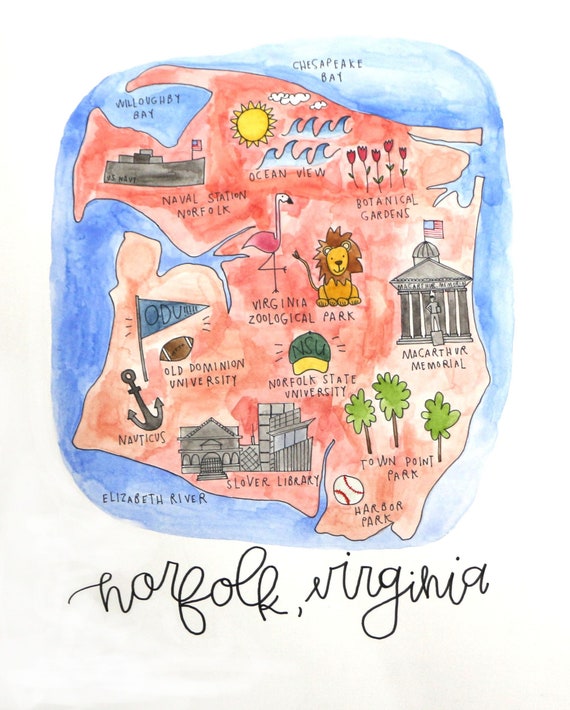 CHESAPEAKE
BAY
WILLOUGHBY
BAY
U.S. NAVY
OCEAN VIEW
NAVAL STATION
NORFOLK
BOTANICAL
GARDENS
VIRGINIA
ZOOLOGICAL PARK
MACARTHUR MEMORIAL
MACARTHUR
MEMORIAL
ODU!!!!
OLD DOMINION
UNIVERSITY
NSU
NORFOLK STATE
UNIVERSITY
NAUTICUS
SLOVER LIBRARY
TOWN POINT
PARK
HARBOR
PARK
ELIZABETH RIVER
norfolk, virginia